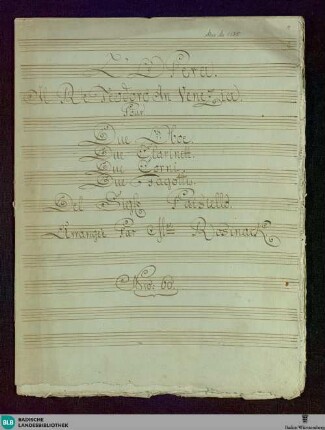 L'Opera.
Il Ré Teodoro In Venezia.
Pour
Due Oboe.
Due Clarinett.
Due Corni.
Due Fagotti.
Del Sigre Paisiello.
Arrangée Par Rosinack
Nro: 60.
BLB BADISCHE
LANDESBIBLIOTHEK
Baden-Württemberg